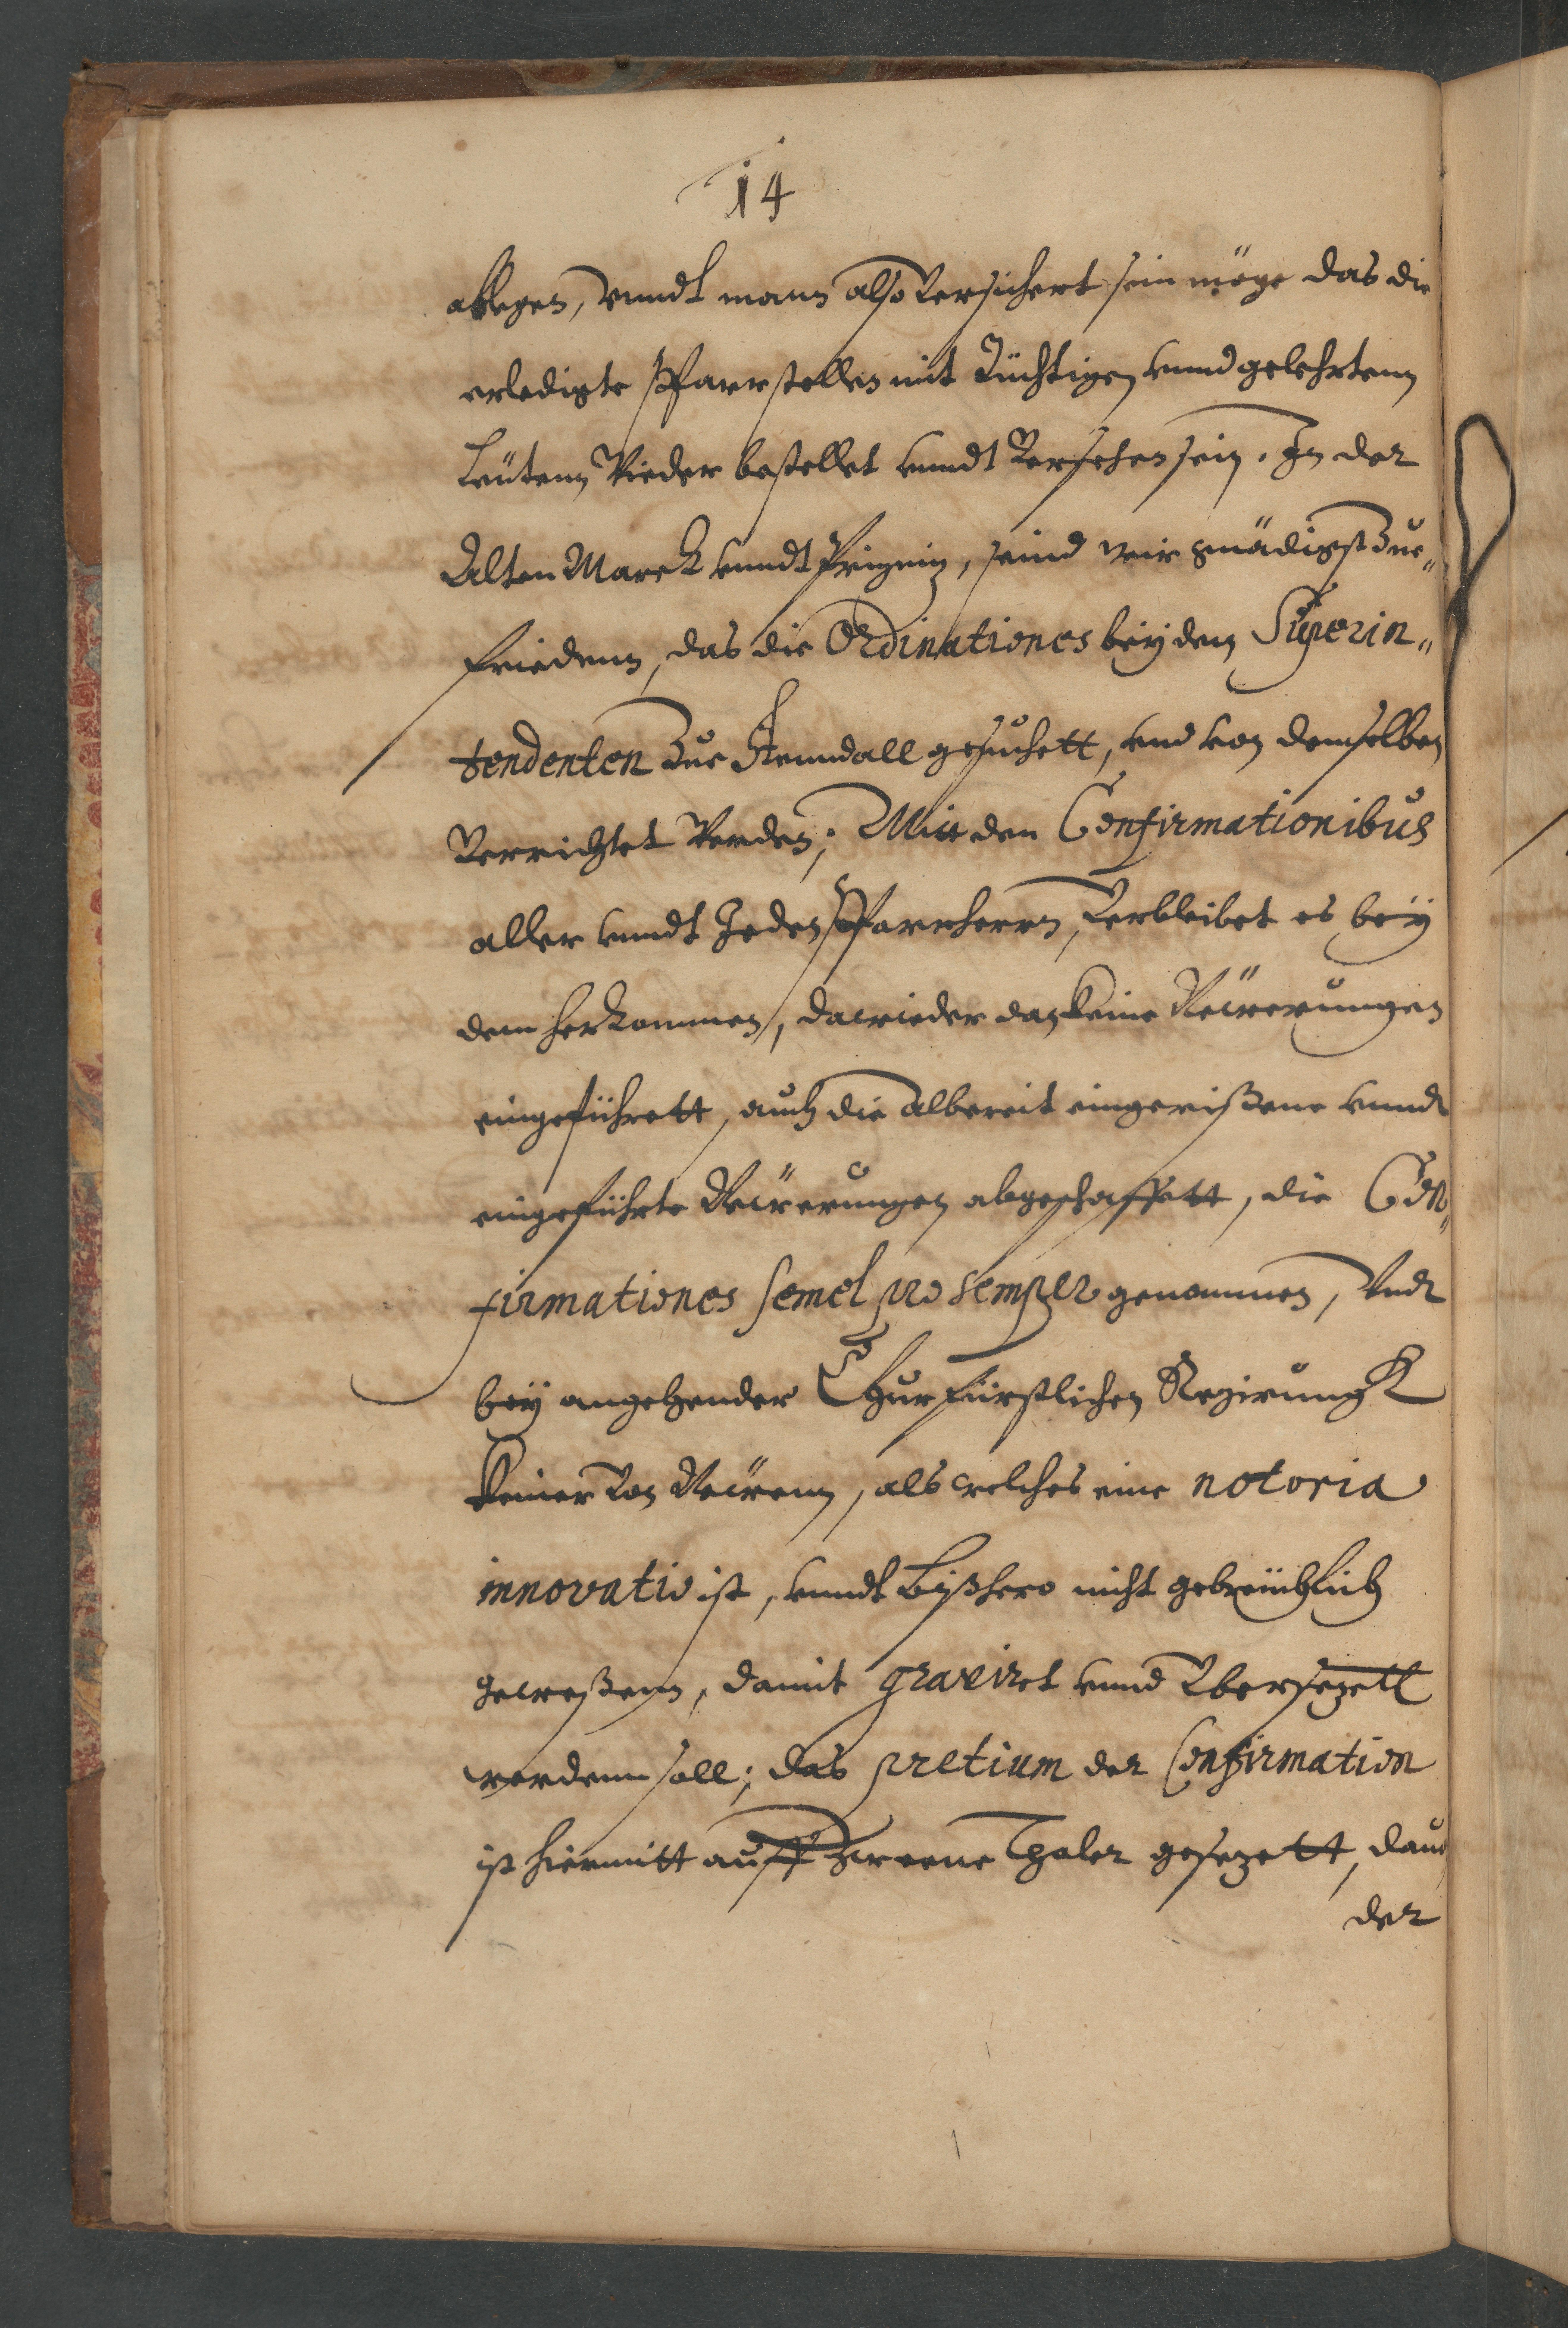 14
ablegen, vnndt mann also versichert sein möge das die
erledigte Pfarrstellen mit Tüchtigen vnnd gelehrtenn
Leütenn Wieder bestellet vnndt Versehen sein. In der
Alten Marck vnndt Prignitz, seind wir gnädigst Zue„
friedenn, das die Ordinationes beÿ den Superin„
tendenten Zue Stenndall gesuchett, vnd von demselben
Verrichtet Werden; Mitt den Confirmationibus
aller vnndt Jeden Pfarrherrn, Verbleibet es beÿ
dem herkommen, dawieder dan keine Newerungen
eingeführett, auch die albereit eingerißene vnndt
eingeführte Newerungen abgeschaffett, die Con„
firmationes semel pro semper genommen, Vndt
beÿ angehender Churfürstlichen Regirungk
keiner Von Newem, als welches eine notoria
innovatio ist, vnndt bißhero nicht gebreüchlich
gewesenn, damit graviret vnnd Vbersezett
werdenn soll; das pretium der Confirmation
ist hiermitt auff Zweene Thaler gesezett, daue
der